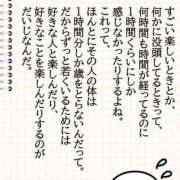 すごく楽しいときとか、
何かに没頭してるときって、
何時間も時間が経ってるのに
1時間くらいにしか
感じなかったりするよね。
これって、
ほんとにその人の体は
1時間分しか歳をとらないんだって。
だからずっと若くいるためには
好きな人と楽しんだり、
好きなことを楽しんだりするのが
だいじなんだ。